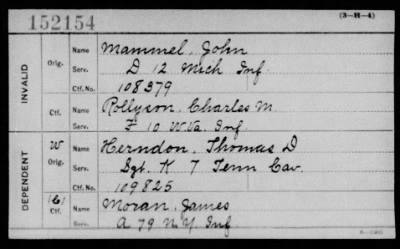 152154 (3-H-4)
INVALID
Orig. Name Mammel, John
Serv. D 12 Mich Inf.
Ctf. No. 108379
Ctf. Name Pollyson, Charles M.
Serv. F 10 W.Va. Inf.
DEPENDENT
W Orig. Name Herndon, Thomas D
Serv. Sgt. K 7 Tenn Cav.
Ctf. No. 109825
Ctf. Name Moran, James
Serv. A 79 N.Y. Inf